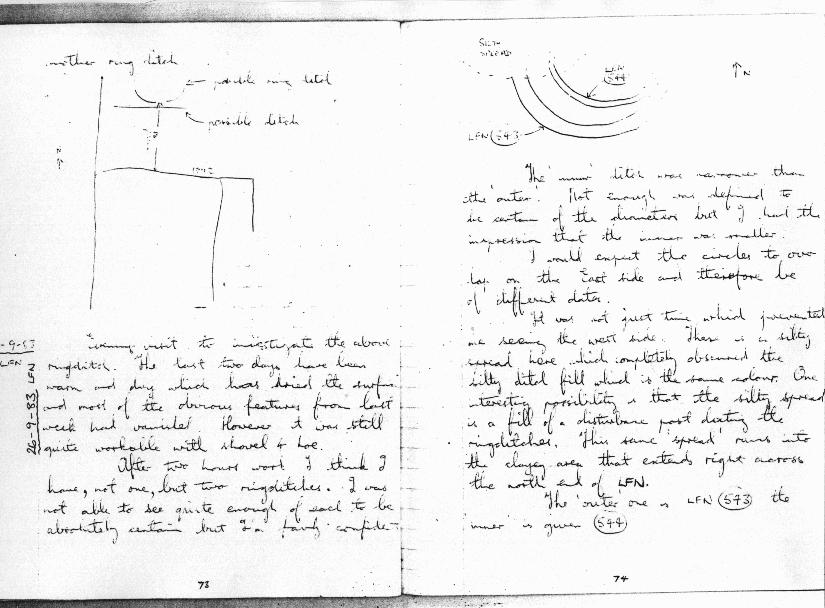 another ring ditch
possible ring ditch
possible ditch
N
-9-83
LFN
26-9-83 LFN
Evening visit to investigate the above
ringditch. The last two days have been
warm and dry which has dried the surface
and most of the obvious features from last
week had vanished. However it was still
quite workable with shovel & hoe.
After two hours work I think I
have, not one, but two ringditches. I was
not able to see quite enough of each to be
absolutely certain but I'm fairly confide-
73
SILTY
SPREAD
LFN
544
N
LFN 543
The 'inner' ditch was narrower than
the 'outer'. Not enough was defined to
be certain of the diameters but I had the
impression that the inner was smaller.
I would expect the circles to over
lap on the East side and therefore be
of different dates.
It was not just time which prevented
me seeing the west side. There is a silty
spread here which completely obscured the
silty ditch fill which is the same colour. One
interesting possibility is that the silty spread
is a fill of a disturbance post dating the
ringditches. This same 'spread' runs into
the clayey area that extends right across
the north end of LFN.
The 'outer' one is LFN 543 the
'inner' is given 544
74